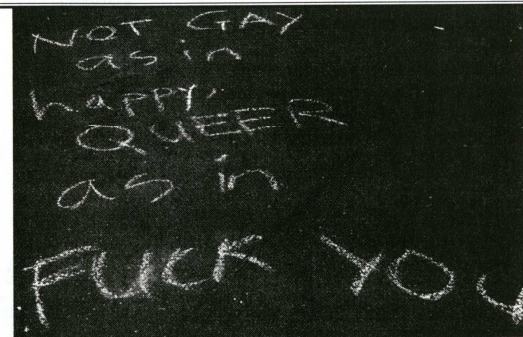 NOT GAY
as in
happy,
QUEER
as in
FUCK YOU